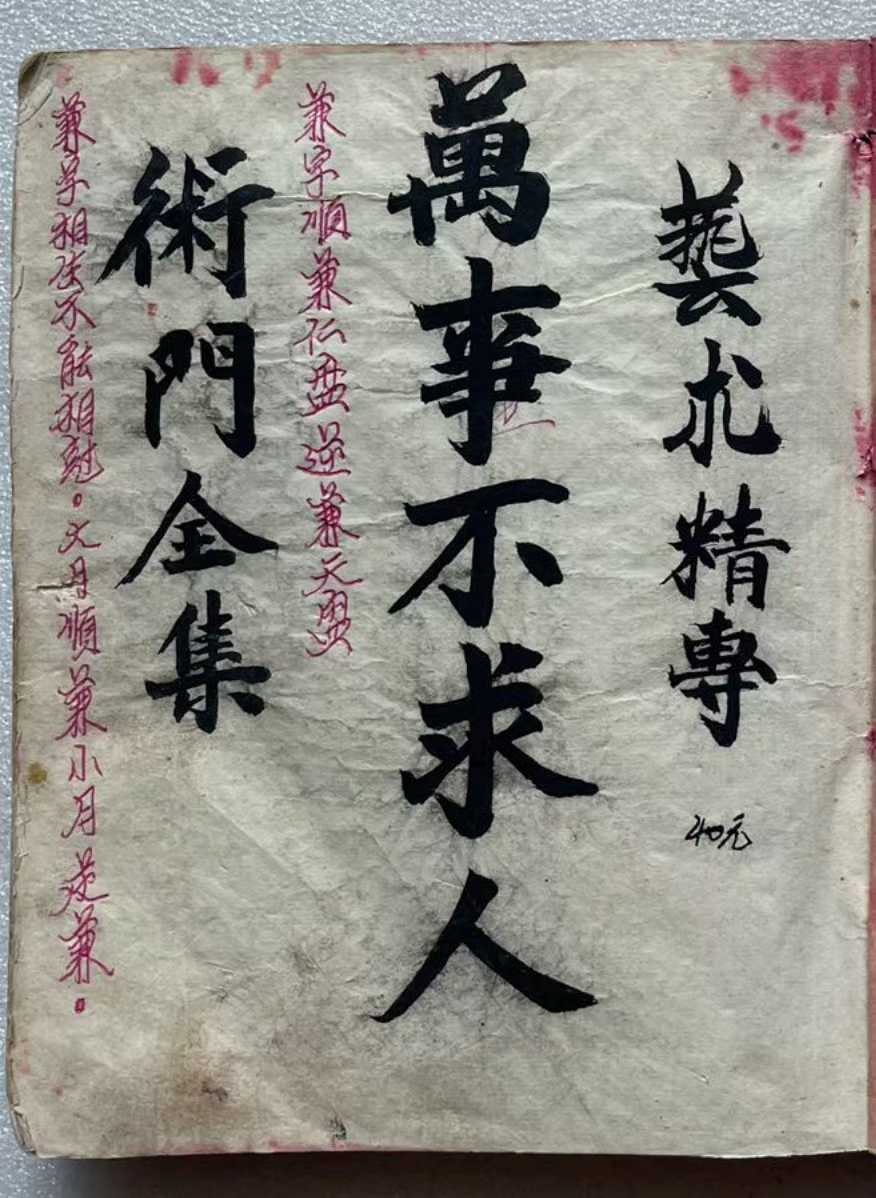 藝朮精專
40元
萬事不求人
兼字順兼仁盘逆兼天盥
術門全集
兼字相法不能相尅。大月順兼小月逆兼。